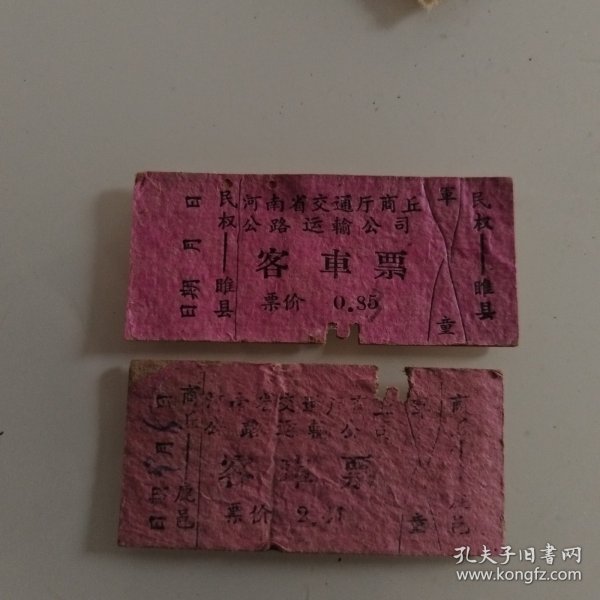 日期 月 日
民权——睢县
河南省交通厅商丘
公路运输公司
客車票
票价 0.85
軍
童
民权——睢县
日期 月 日
商丘——鹿邑
河南省交通厅商丘
公路运输公司
客車票
票价 2.
童
商 邑
孔夫子旧书网
www.kongfz.com